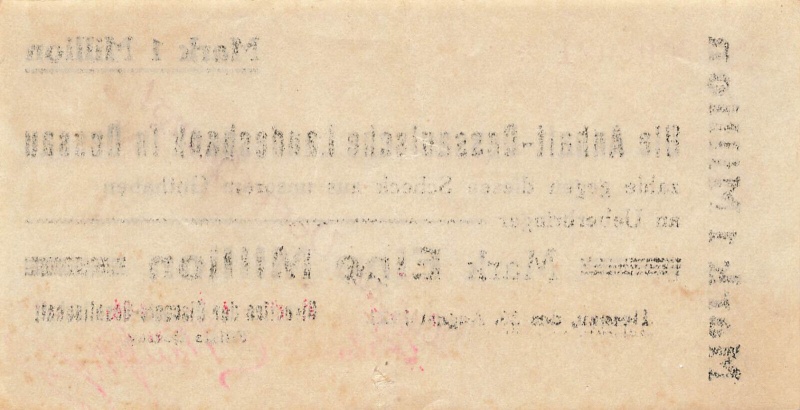 Mark 1 Million
Die Anhalt-Dessauische Landesbank in Dessau
zahle gegen diesen Scheck aus unserem Guthaben
an Ueberbringer
Mark Eine Million
Dessau, den August
Direction der Disconto-Gesellschaft
Mark 1 Million